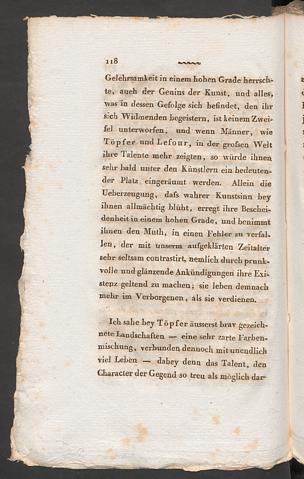 118
Gelehrsamkeit in einem hohen Grade herrsch-
te, auch der Genius der Kunst, und alles,
was in dessen Gefolge sich befindet, den ihr
sich Widmenden begeistern, ist keinem Zwei-
fel unterworfen, und wenn Männer, wie
Töpfer und Lefour, in der grossen Welt
ihre Talente mehr zeigten, so würde ihnen
sehr bald unter den Künstlern ein bedeuten-
der Platz eingeräumt werden. Allein die
Ueberzeugung, dass wahrer Kunstsinn bey
ihnen allmächtig blüht, erregt ihre Beschei-
denheit in einem hohen Grade, und benimmt
ihnen den Muth, in einen Fehler zu verfal-
len, der mit unserm aufgeklärten Zeitalter
sehr seltsam contrastirt, nemlich durch prunk-
volle und glänzende Ankündigungen ihre Exi-
stenz geltend zu machen; sie leben demnach
mehr im Verborgenen, als sie verdienen.
Ich sahe bey Töpfer äusserst brav gezeich-
nete Landschaften — eine sehr zarte Farben-
mischung, verbunden dennoch mit unendlich
viel Leben — dabey denn das Talent, den
Character der Gegend so treu als möglich dar-